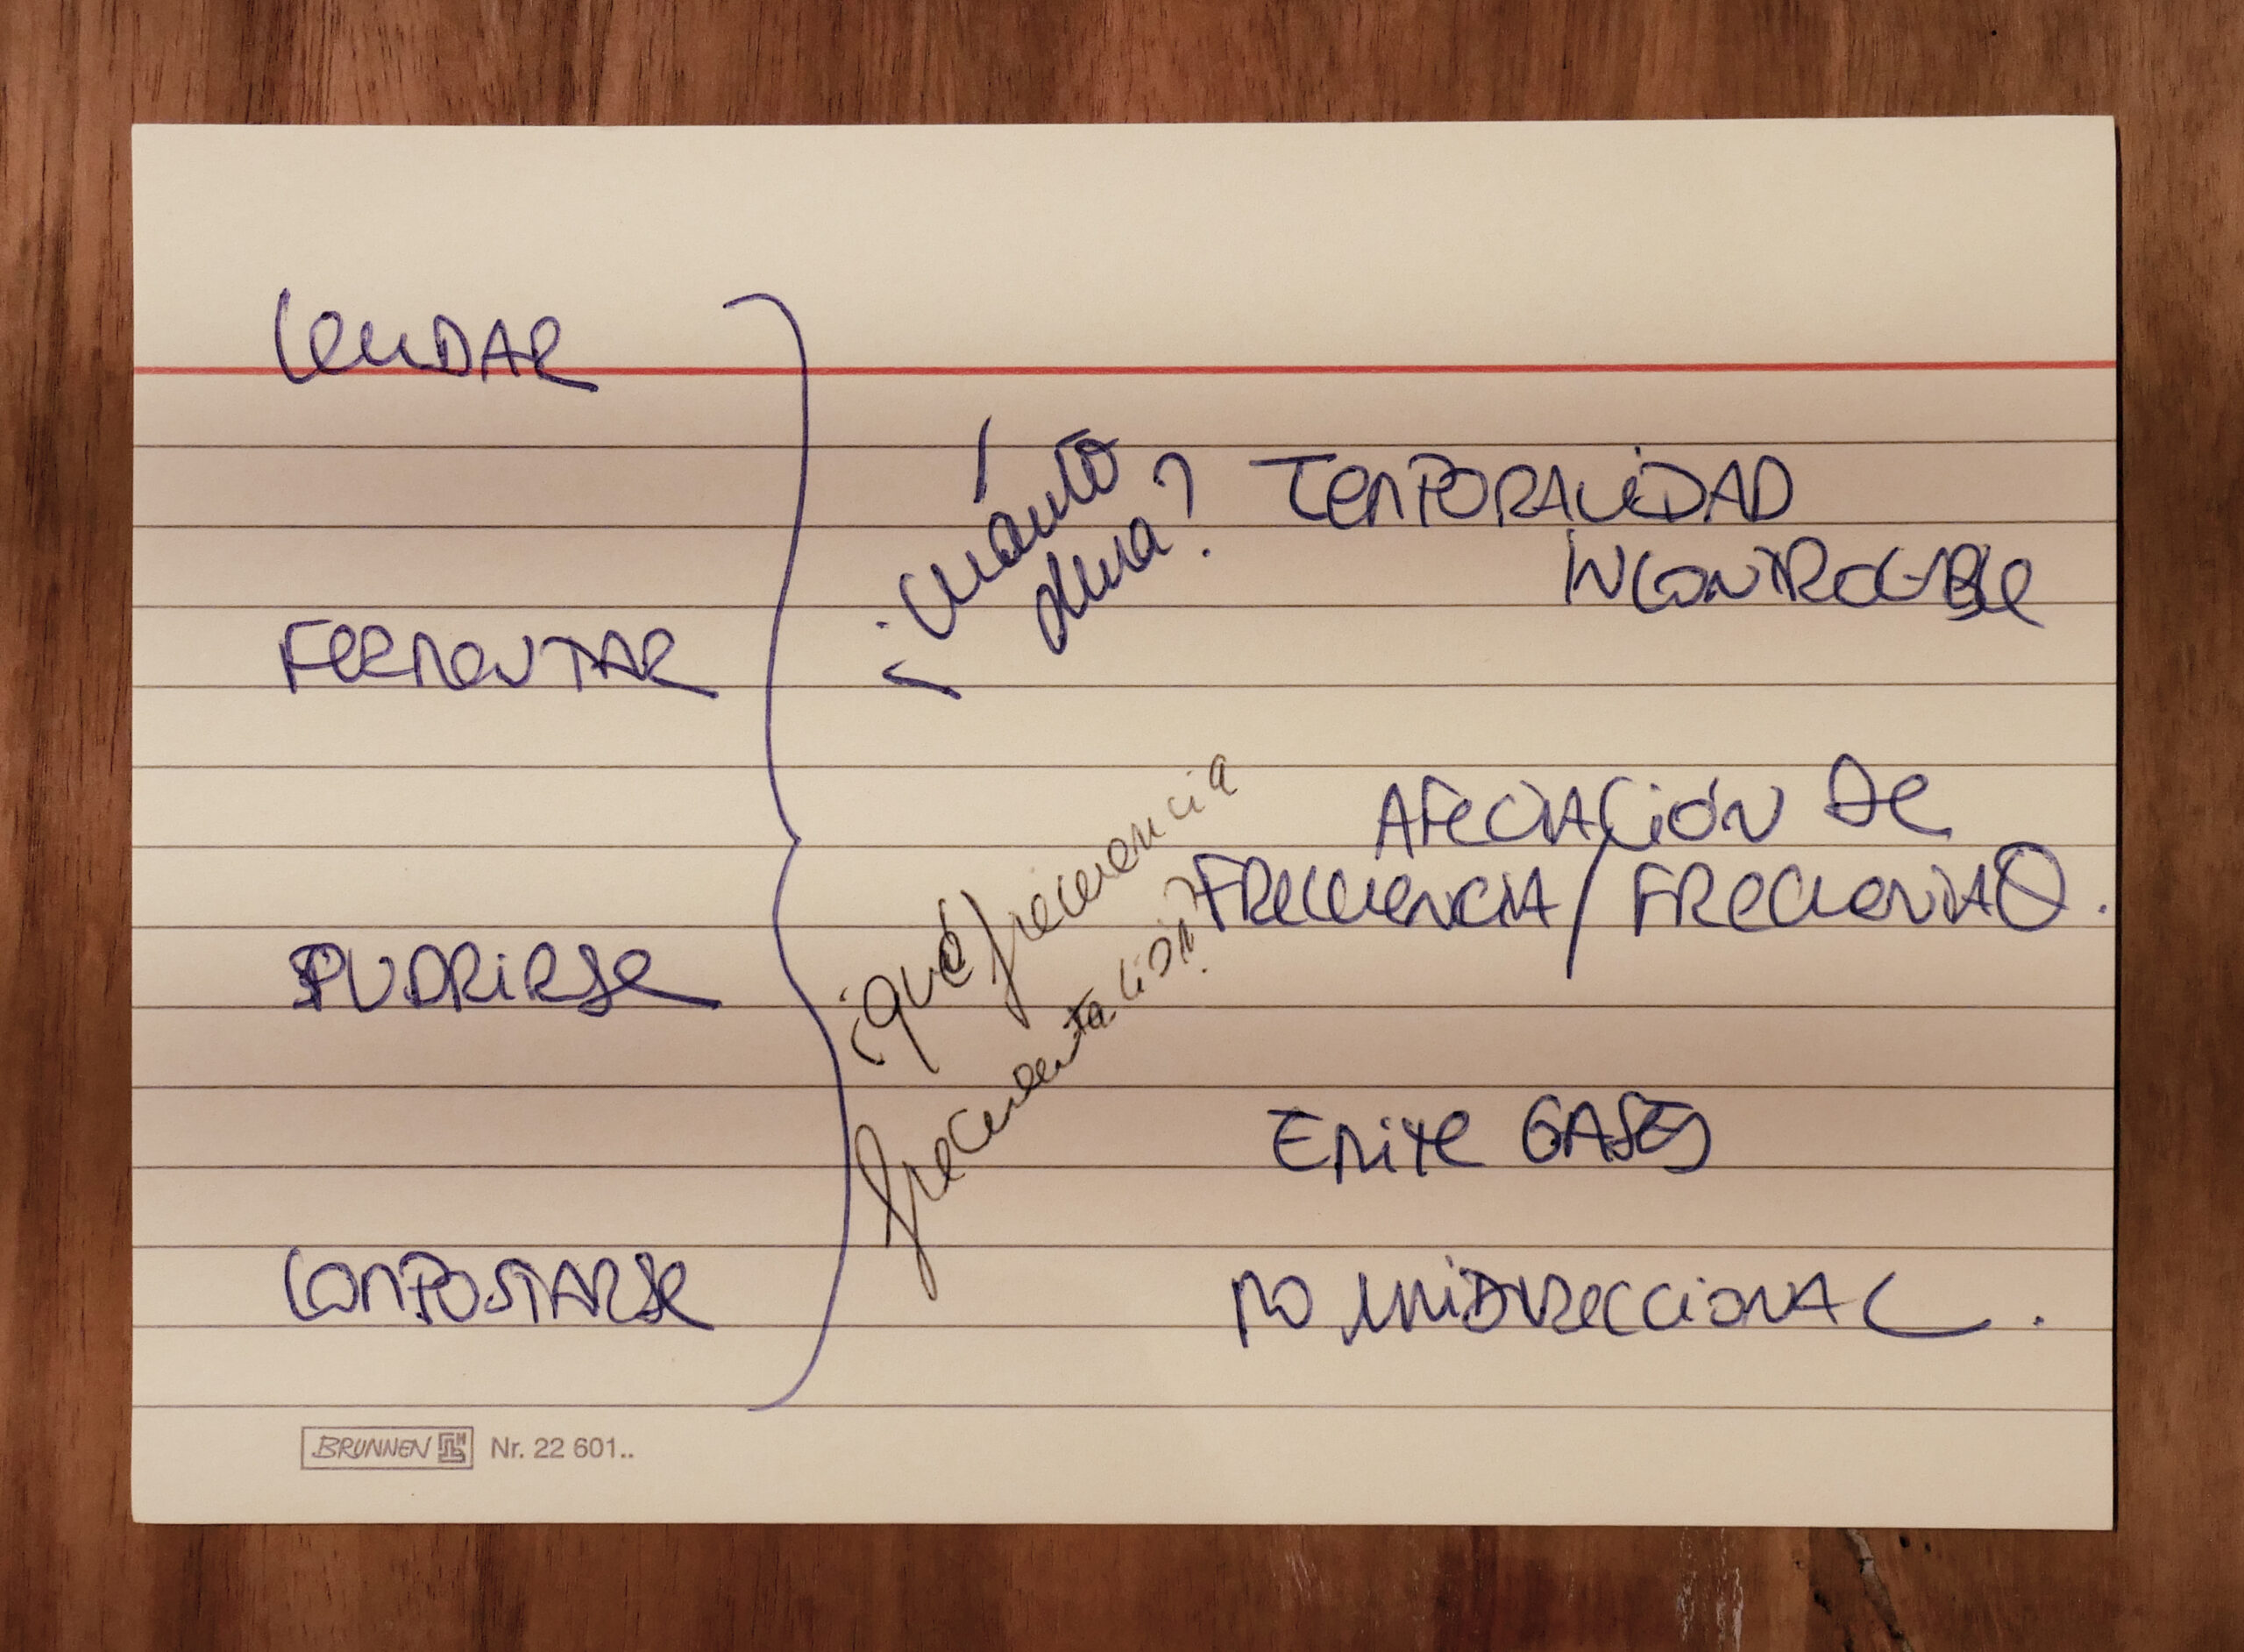 LEUDAR
FERMENTAR
PUDRIRSE
COMPOSTARSE
¿cuánto
dura?
TEMPORALIDAD
INCONTROLABLE
¿qué frecuencia
frecuentación?
AFECTACIÓN DE
FRECUENCIA / FRECUENTAO.
EMITE GASES
NO UNIDIRECCIONAL.
BRUNNEN Nr. 22 601..